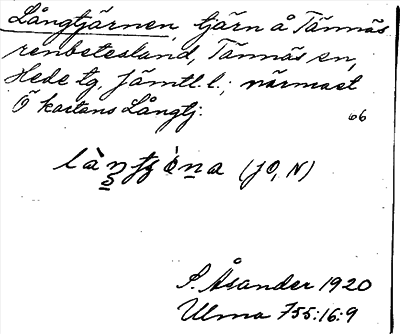 Långtjärnen, tjärn å Tännäs
renbetesland, Tännäs sn,
Hede tg, Jämtl. l.; närmast
Ö kartans Långtj.
66
(JO, N)
S. Åsander 1920
Ulma 755:16:9